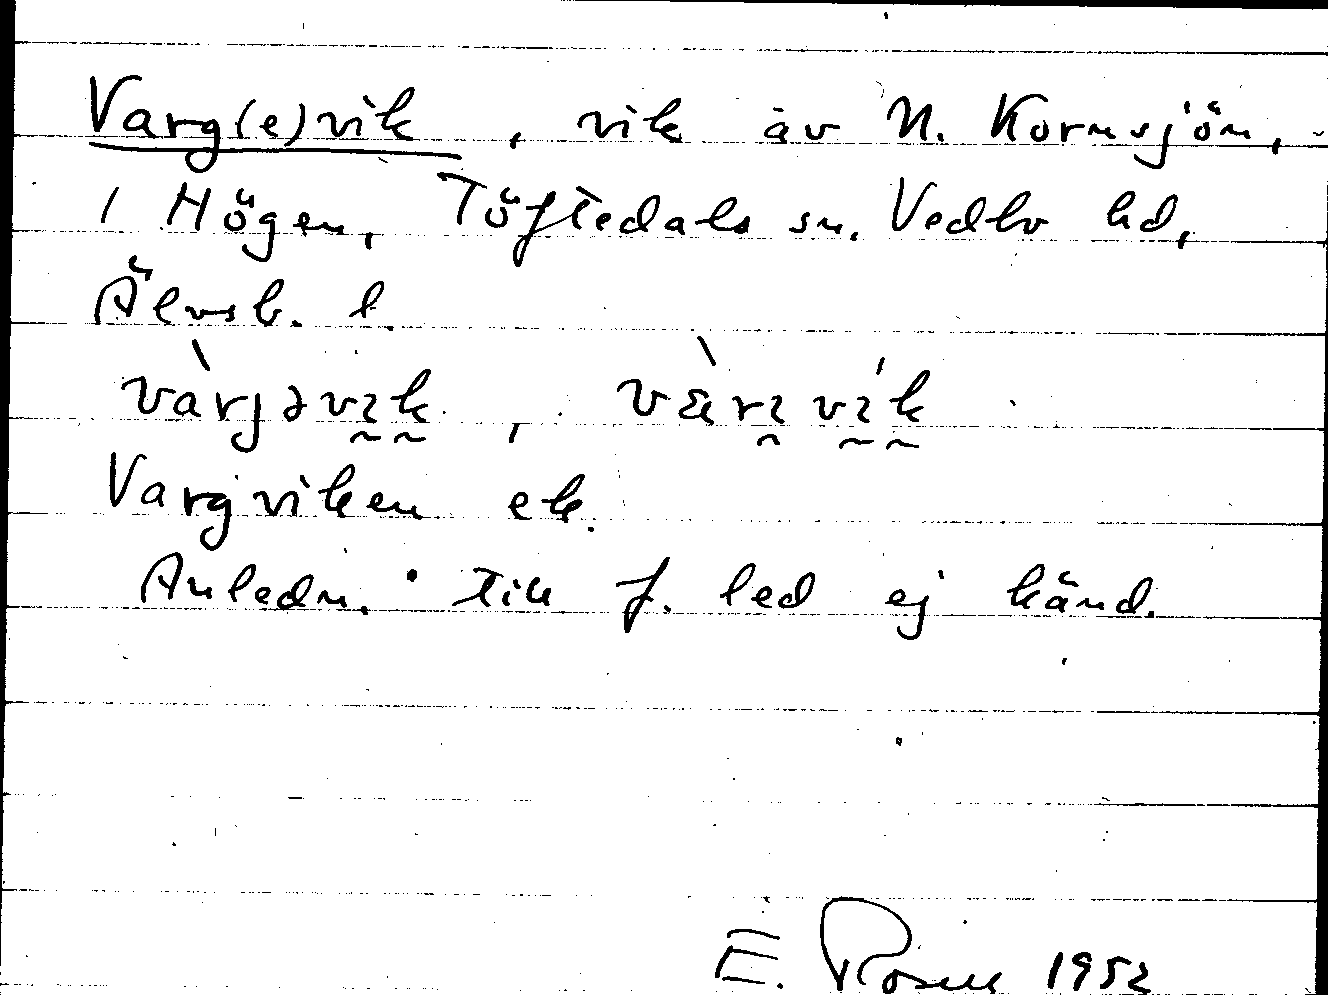 Varg(e)vik, vik av N. Kornsjön,
i Högen, Töftedals sn. Vedbo hd,
Älvsb. l.
vàrjəvik, væ̀rivík
Vargviken ek.
Anledn. till f. led ej känd.
E. Rosell 1952